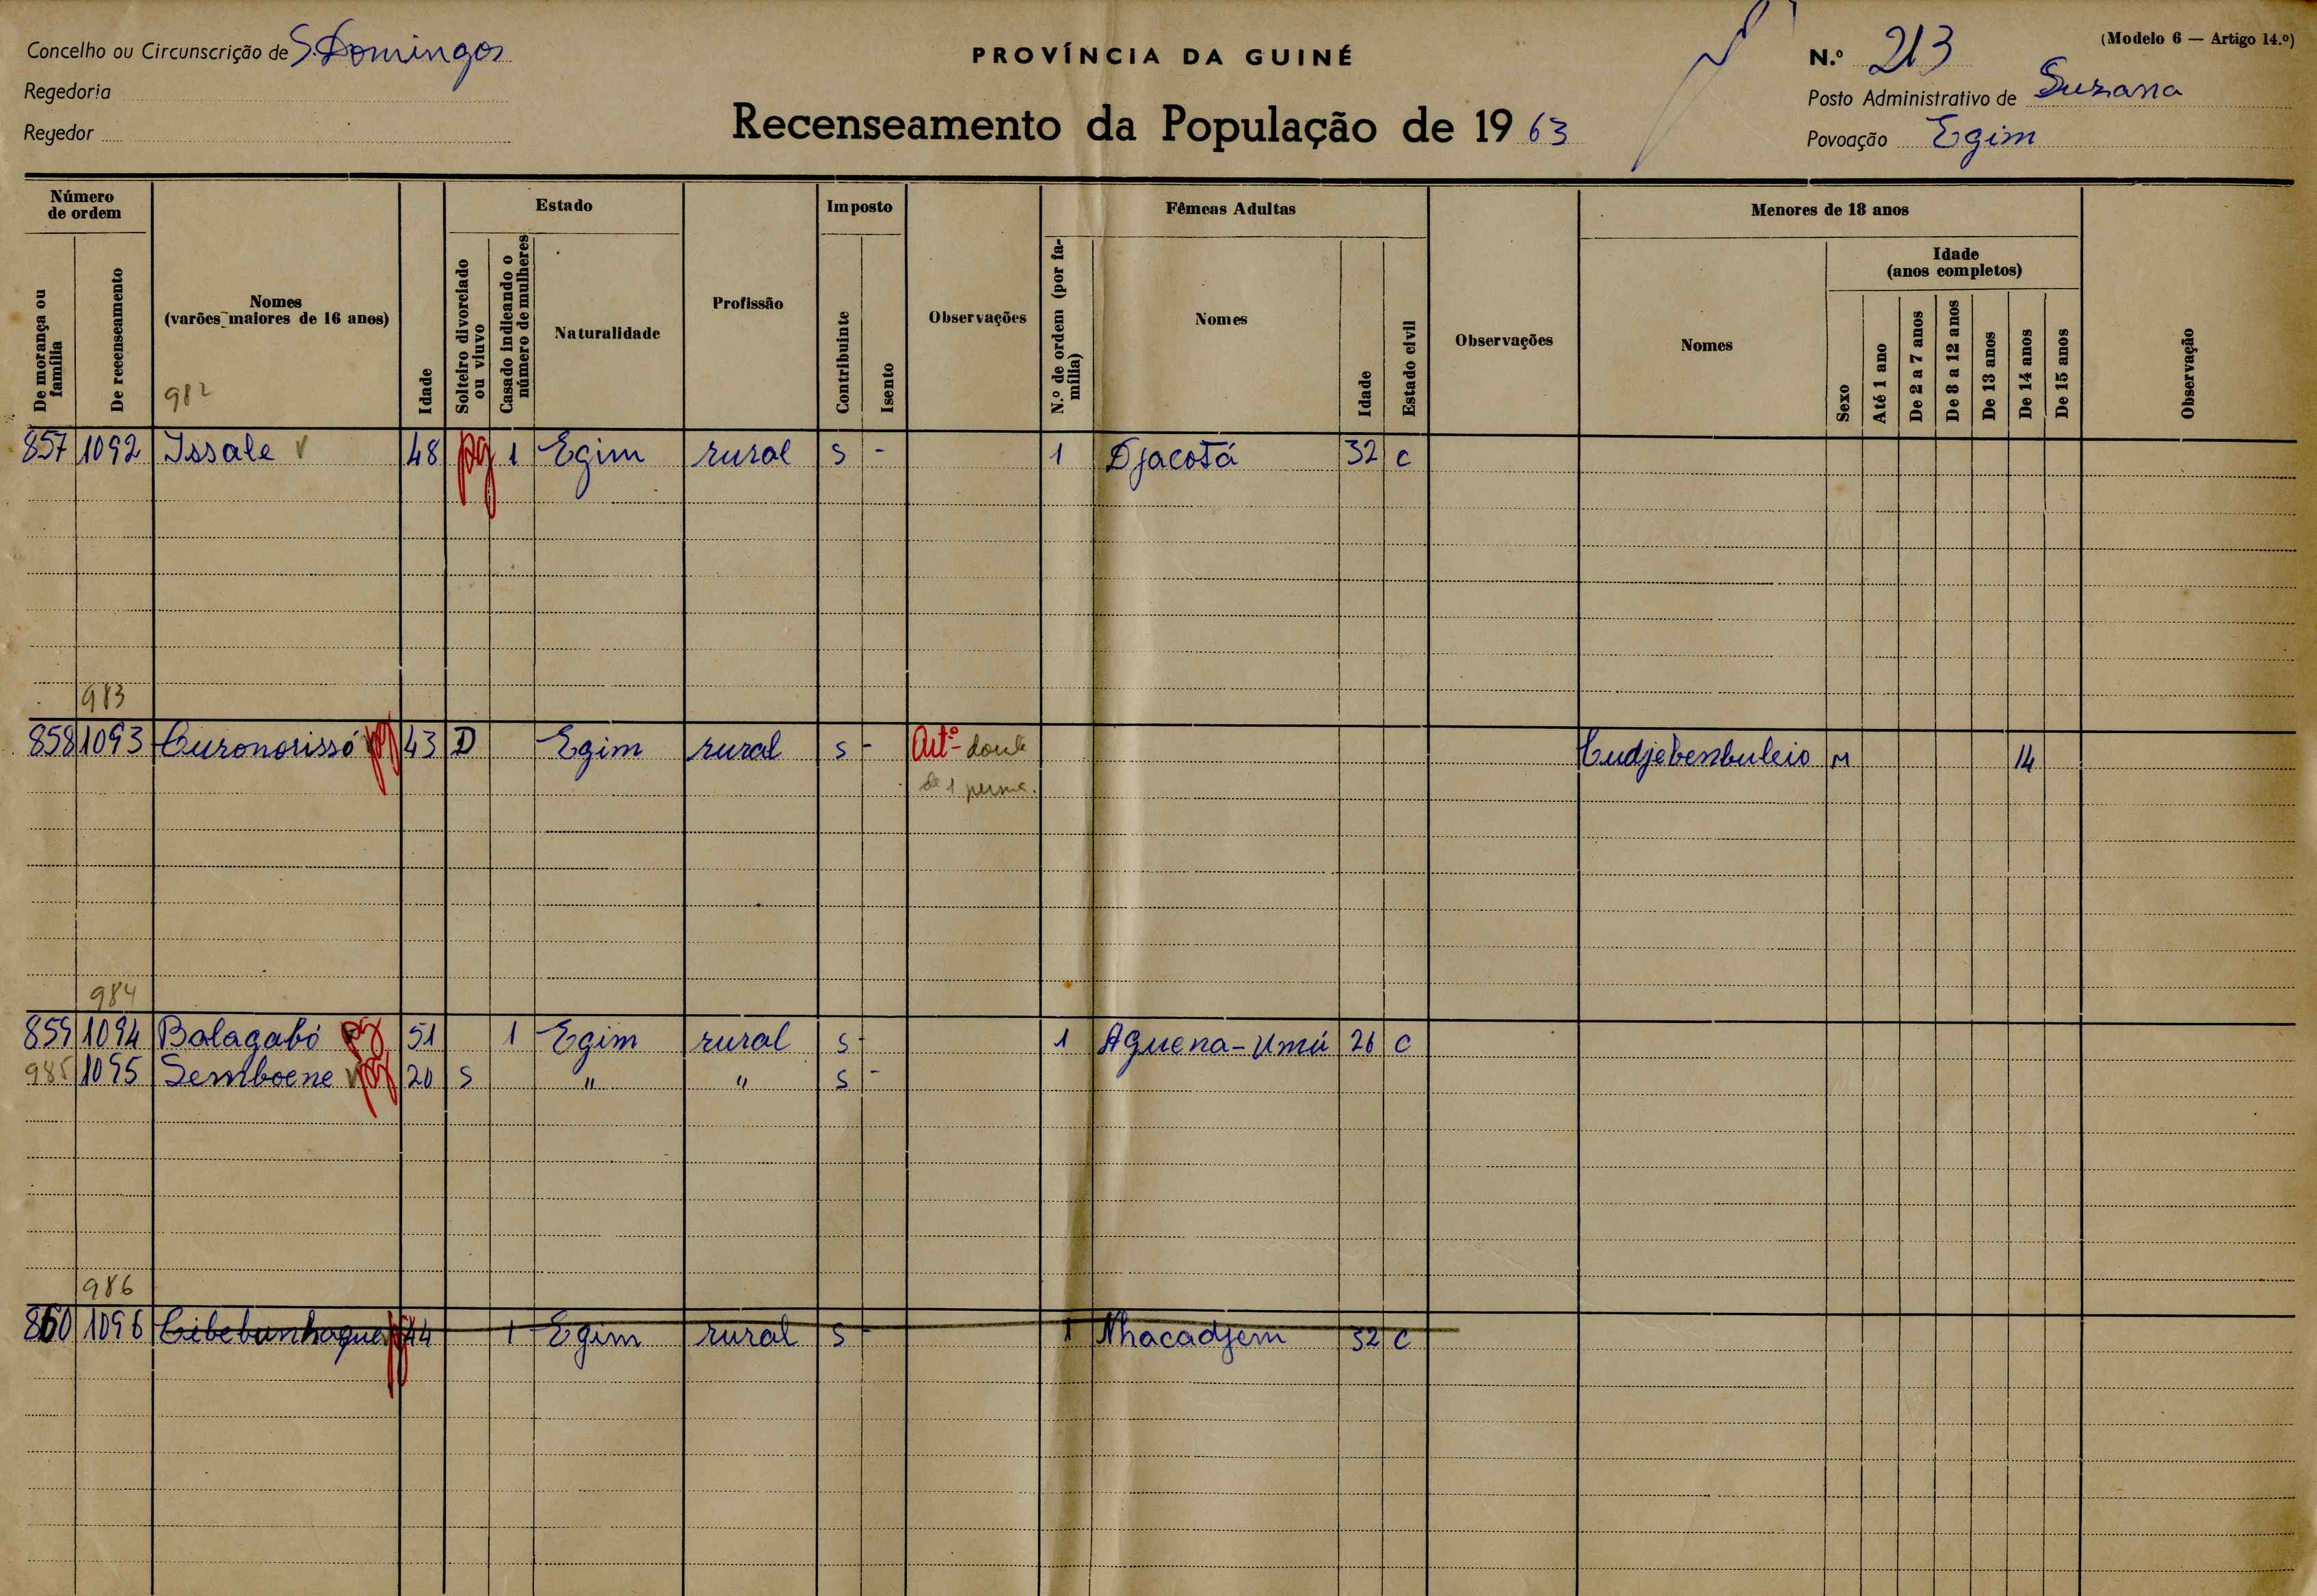 Concelho ou Circunscrição de S. Domingos
Regedoria
Regedor
PROVÍNCIA DA GUINÉ
Recenseamento da População de 1963
(Modelo 6 — Artigo 14.º)
N.º 213
Posto Administrativo de Suzana
Povoação Egim
Número de ordem
De morança ou família
De recenseamento
Nomes
(varões maiores de 16 anos)
982
Idade
Estado
Solteiro divorciado ou viuvo
Casado indicando o número de mulheres
Naturalidade
Profissão
Imposto
Contribuinte
Isento
Observações
Fêmeas Adultas
N.º de ordem (por família)
Nomes
Idade
Estado civil
Observações
Menores de 18 anos
Nomes
Sexo
Idade
(anos completos)
Até 1 ano
De 2 a 7 anos
De 8 a 12 anos
De 13 anos
De 14 anos
De 15 anos
Observação
857 1092 Issale 48 pg 1 Egim rural s - 1 Djacotá 32 c
983
858 1093 Curonorissó pg 43 D Egim rural s - Art.º Cudjebenbuleio M 14
de 1
984
859 1094 Balagabó pg 51 1 Egim rural s - 1 Aguena-Umú 26 c
985 1095 Semboene pg 20 s " " s -
986
860 1096 Cibebunhaque pg 44 1 Egim rural s - 1 Nhacadjem 32 c